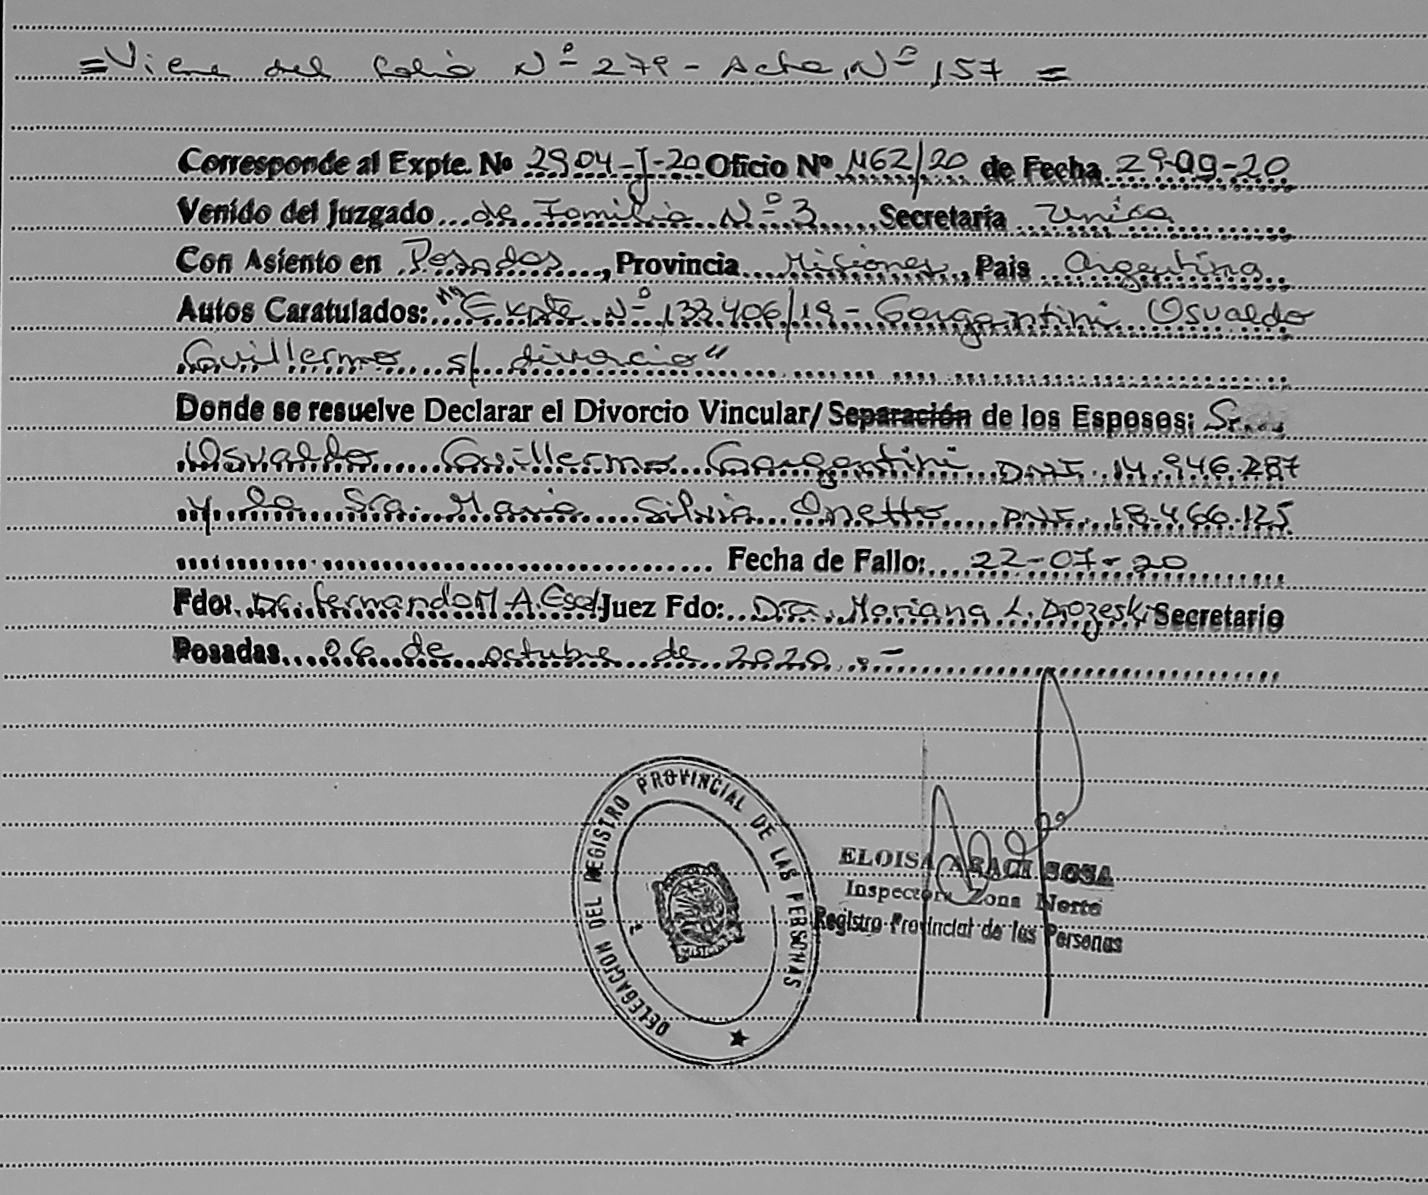 =Viene del folio Nº 279 - Acta Nº 157 =
Corresponde al Expte. Nº 2904-J-20 Oficio Nº 1162/20 de Fecha 29-09-20
Venido del Juzgado de Familia Nº 3 Secretaría Unica
Con Asiento en Posadas, Provincia Misiones, Pais Argentina
Autos Caratulados: "Expte Nº 133406/19 - Gargantini Osvaldo
Guillermo s/ divorcio"
Donde se resuelve Declarar el Divorcio Vincular/ Separación de los Esposos: Sr.
Osvaldo Guillermo Gargantini DNI. 14.946.287
y la Sra. Maria Silvia Onetto DNI. 18.466.125
Fecha de Fallo: 22-07-20
Fdo: Dr. Fernando M A. Juez Fdo: Dra. Mariana L. Secretario
Posadas 06 de octubre de 2020.-
DELEGACION DEL REGISTRO PROVINCIAL DE LAS PERSONAS
ELOISA ARACI SOSA
Inspectora Zona Norte
Registro Provincial de las Personas